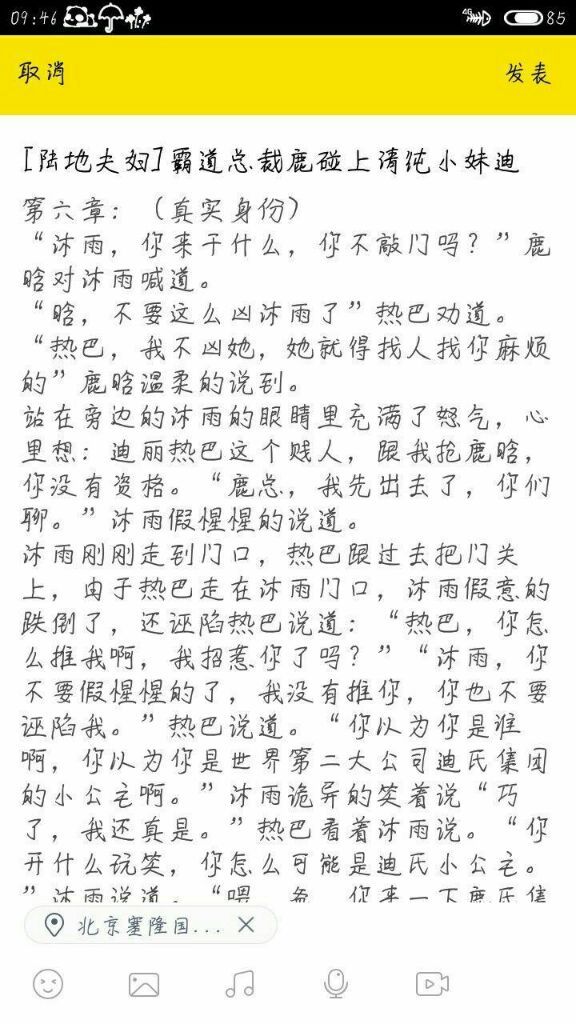 09:46
4G
85
取消
发表
[陆地夫妇]霸道总裁鹿碰上清纯小妹迪
第六章：（真实身份）
“沐雨，你来干什么，你不敲门吗？”鹿
晗对沐雨喊道。
“晗，不要这么凶沐雨了”热巴劝道。
“热巴，我不凶她，她就得找人找你麻烦
的”鹿晗温柔的说到。
站在旁边的沐雨的眼睛里充满了怒气，心
里想：迪丽热巴这个贱人，跟我抢鹿晗，
你没有资格。“鹿总，我先出去了，你们
聊。”沐雨假惺惺的说道。
沐雨刚刚走到门口，热巴跟过去把门关
上，由于热巴走在沐雨门口，沐雨假意的
跌倒了，还诬陷热巴说道：“热巴，你怎
么推我啊，我招惹你了吗？”“沐雨，你
不要假惺惺的了，我没有推你，你也不要
诬陷我。”热巴说道。“你以为你是谁
啊，你以为你是世界第二大公司迪氏集团
的小公主啊。”沐雨诡异的笑着说“巧
了，我还真是。”热巴看着沐雨说。“你
开什么玩笑，你怎么可能是迪氏小公主。
”沐雨说道。“喂，爸，你来一下鹿氏集
北京塞隆国...